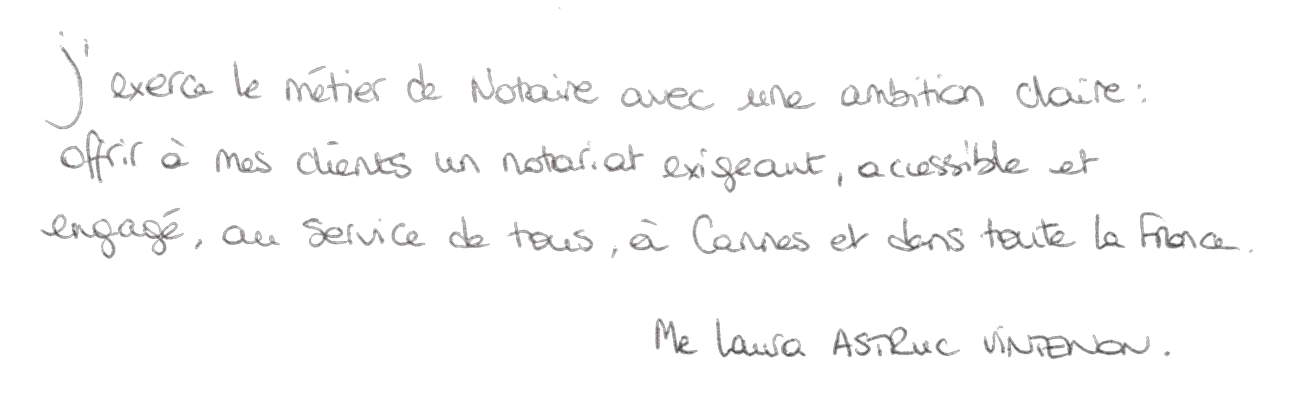 J'exerce le métier de Notaire avec une ambition claire :
offrir à mes clients un notariat exigeant, accessible et
engagé, au service de tous, à Cannes et dans toute la France.
Me Laura ASTRUC VINTENON.